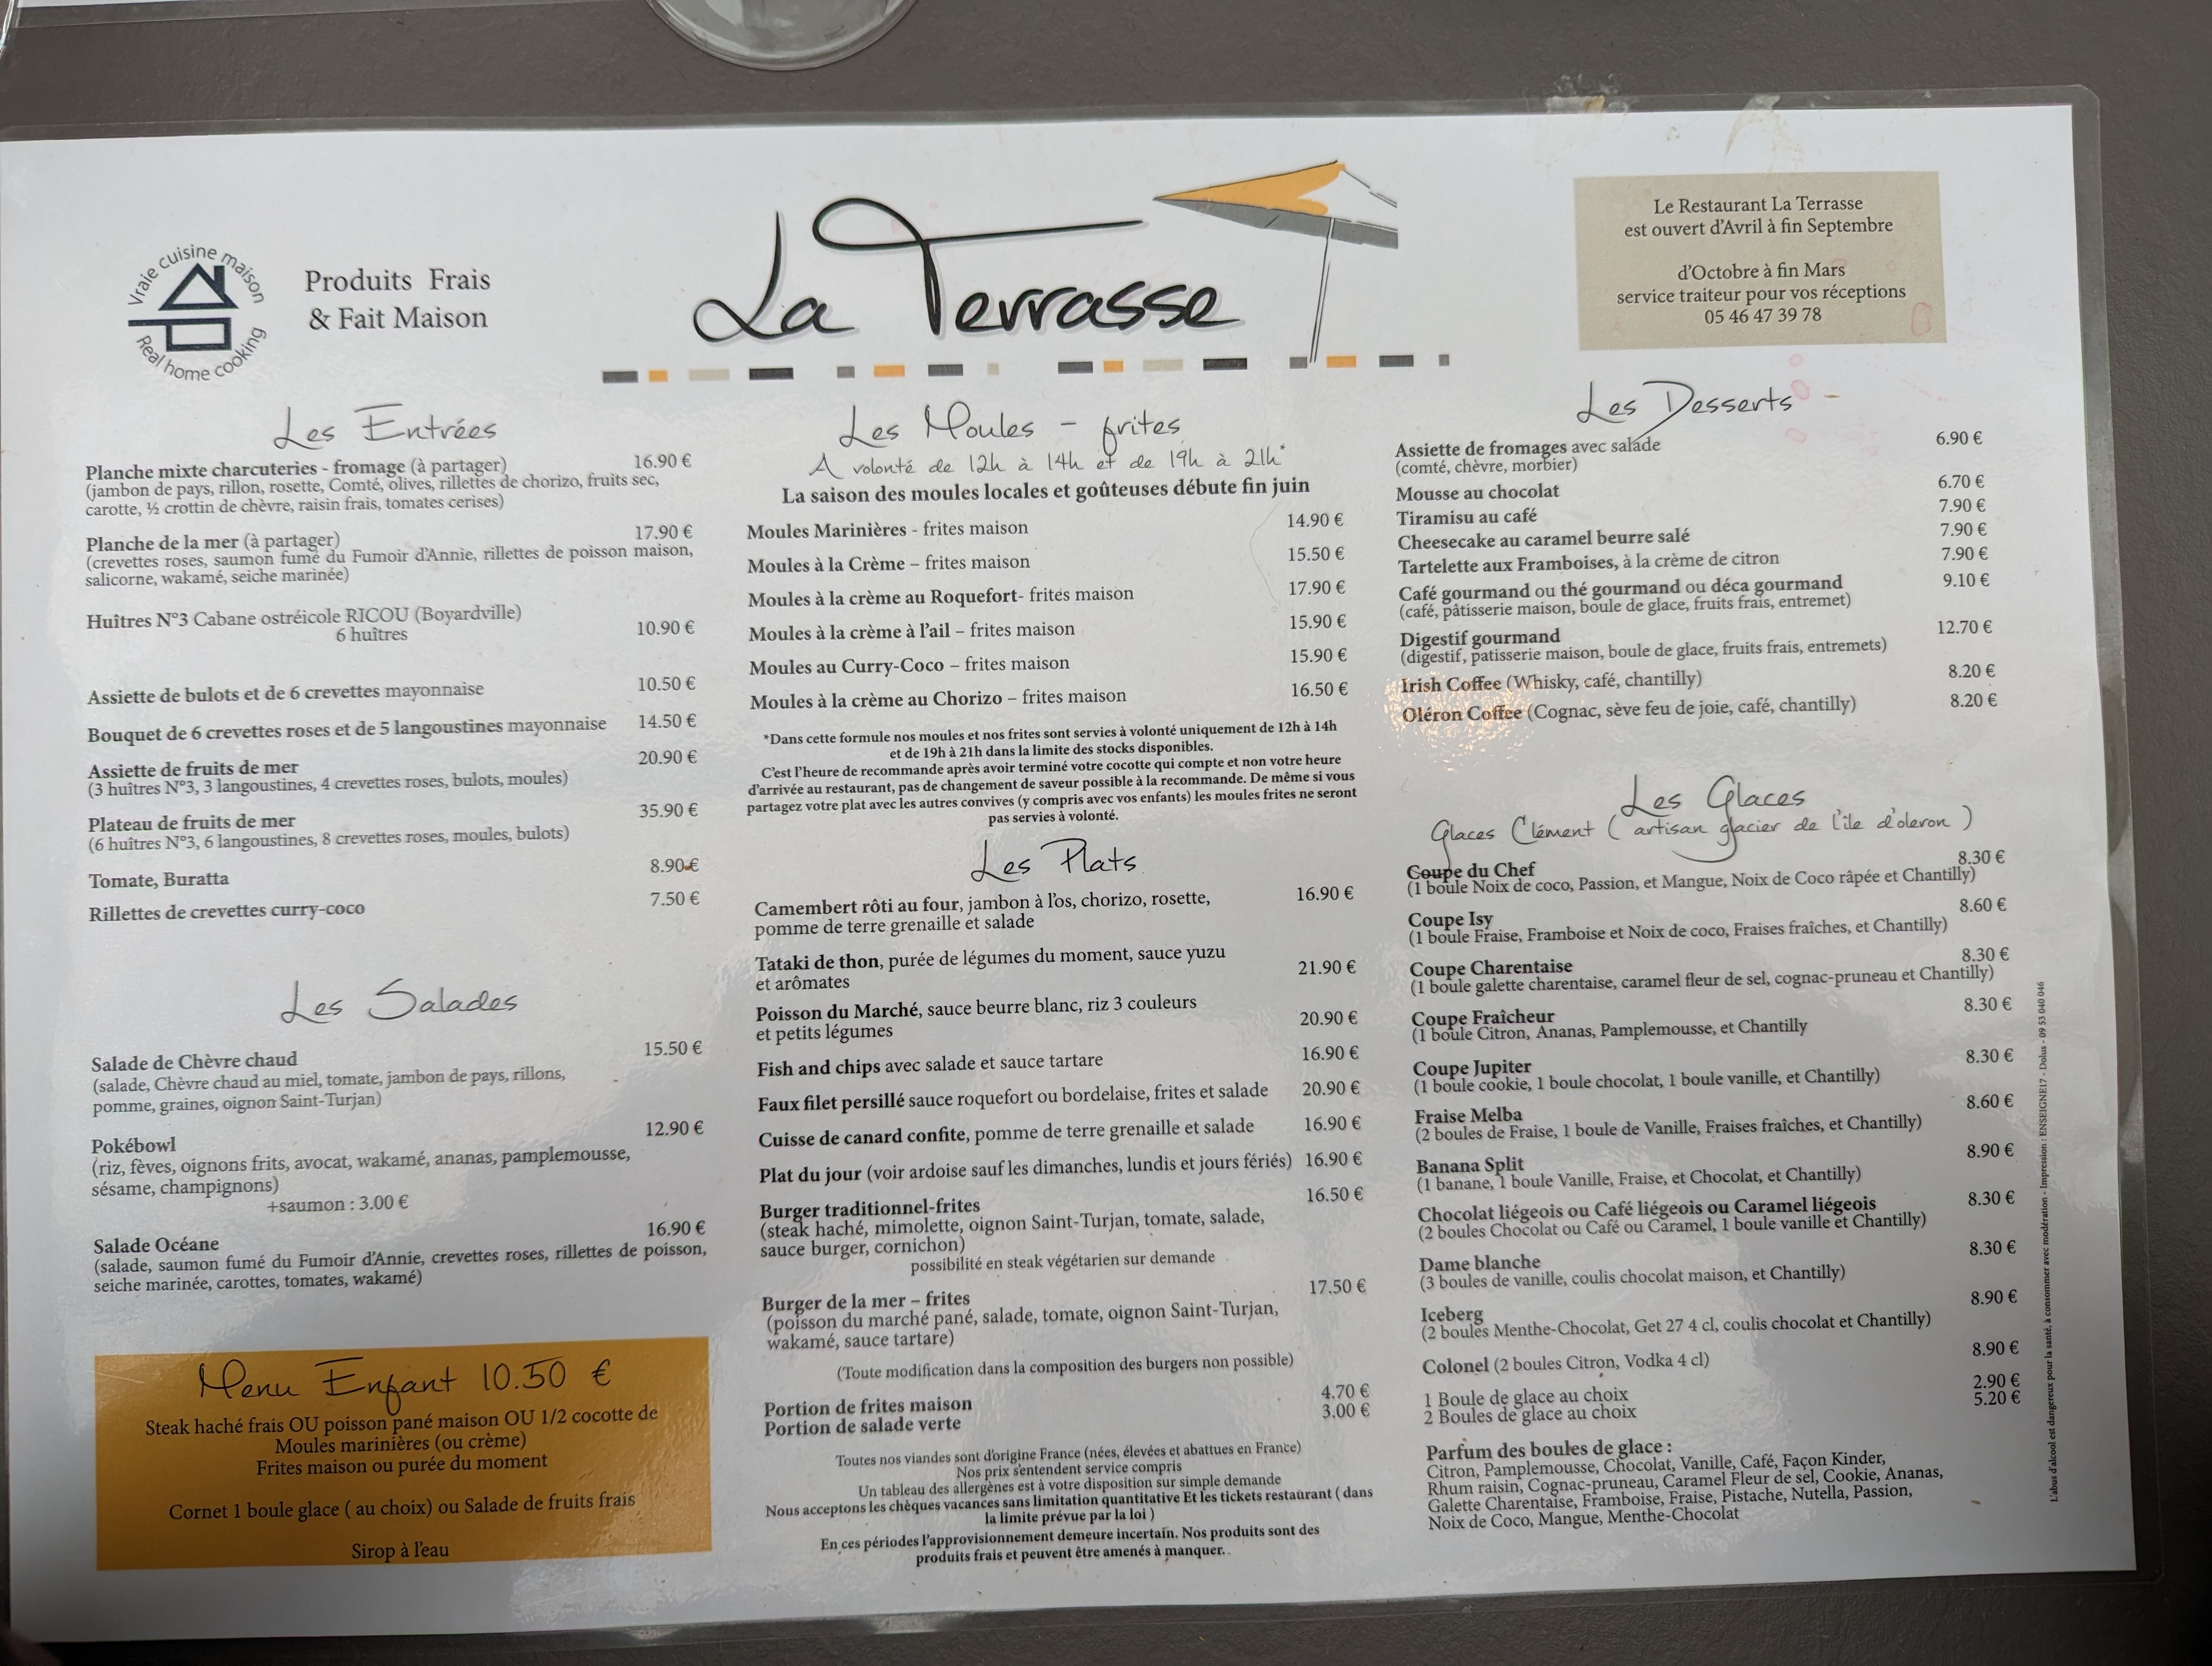 Vraie cuisine maison
Real home cooking
Produits Frais
& Fait Maison
La Terrasse
Le Restaurant La Terrasse
est ouvert d'Avril à fin Septembre
d'Octobre à fin Mars
service traiteur pour vos réceptions
05 46 47 39 78
Les Entrées
Planche mixte charcuteries - fromage (à partager) 16.90 €
(jambon de pays, rillon, rosette, Comté, olives, rillettes de chorizo, fruits sec,
carotte, ½ crottin de chèvre, raisin frais, tomates cerises)
Planche de la mer (à partager) 17.90 €
(crevettes roses, saumon fumé du Fumoir d'Annie, rillettes de poisson maison,
salicorne, wakamé, seiche marinée)
Huîtres N°3 Cabane ostréicole RICOU (Boyardville)
6 huîtres 10.90 €
Assiette de bulots et de 6 crevettes mayonnaise 10.50 €
Bouquet de 6 crevettes roses et de 5 langoustines mayonnaise 14.50 €
Assiette de fruits de mer 20.90 €
(3 huîtres N°3, 3 langoustines, 4 crevettes roses, bulots, moules)
Plateau de fruits de mer 35.90 €
(6 huîtres N°3, 6 langoustines, 8 crevettes roses, moules, bulots)
Tomate, Buratta 8.90 €
Rillettes de crevettes curry-coco 7.50 €
Les Salades
Salade de Chèvre chaud 15.50 €
(salade, Chèvre chaud au miel, tomate, jambon de pays, rillons,
pomme, graines, oignon Saint-Turjan)
Pokébowl 12.90 €
(riz, fèves, oignons frits, avocat, wakamé, ananas, pamplemousse,
sésame, champignons)
+saumon : 3.00 €
Salade Océane 16.90 €
(salade, saumon fumé du Fumoir d'Annie, crevettes roses, rillettes de poisson,
seiche marinée, carottes, tomates, wakamé)
Menu Enfant 10.50 €
Steak haché frais OU poisson pané maison OU 1/2 cocotte de
Moules marinières (ou crème)
Frites maison ou purée du moment
Cornet 1 boule glace ( au choix) ou Salade de fruits frais
Sirop à l'eau
Les Moules - frites
A volonté de 12h à 14h et de 19h à 21h*
La saison des moules locales et goûteuses débute fin juin
Moules Marinières - frites maison 14.90 €
Moules à la Crème – frites maison 15.50 €
Moules à la crème au Roquefort- frites maison 17.90 €
Moules à la crème à l'ail – frites maison 15.90 €
Moules au Curry-Coco – frites maison 15.90 €
Moules à la crème au Chorizo – frites maison 16.50 €
*Dans cette formule nos moules et nos frites sont servies à volonté uniquement de 12h à 14h
et de 19h à 21h dans la limite des stocks disponibles.
C'est l'heure de recommande après avoir terminé votre cocotte qui compte et non votre heure
d'arrivée au restaurant, pas de changement de saveur possible à la recommande. De même si vous
partagez votre plat avec les autres convives (y compris avec vos enfants) les moules frites ne seront
pas servies à volonté.
Les Plats
Camembert rôti au four, jambon à l'os, chorizo, rosette, 16.90 €
pomme de terre grenaille et salade
Tataki de thon, purée de légumes du moment, sauce yuzu
et arômates 21.90 €
Poisson du Marché, sauce beurre blanc, riz 3 couleurs
et petits légumes 20.90 €
Fish and chips avec salade et sauce tartare 16.90 €
Faux filet persillé sauce roquefort ou bordelaise, frites et salade 20.90 €
Cuisse de canard confite, pomme de terre grenaille et salade 16.90 €
Plat du jour (voir ardoise sauf les dimanches, lundis et jours fériés) 16.90 €
Burger traditionnel-frites 16.50 €
(steak haché, mimolette, oignon Saint-Turjan, tomate, salade,
sauce burger, cornichon)
possibilité en steak végétarien sur demande
Burger de la mer – frites 17.50 €
(poisson du marché pané, salade, tomate, oignon Saint-Turjan,
wakamé, sauce tartare)
(Toute modification dans la composition des burgers non possible)
Portion de frites maison 4.70 €
Portion de salade verte 3.00 €
Toutes nos viandes sont d'origine France (nées, élevées et abattues en France)
Nos prix s'entendent service compris
Un tableau des allergènes est à votre disposition sur simple demande
Nous acceptons les chèques vacances sans limitation quantitative Et les tickets restaurant ( dans
la limite prévue par la loi )
En ces périodes l'approvisionnement demeure incertain. Nos produits sont des
produits frais et peuvent être amenés à manquer. .
Les Desserts
Assiette de fromages avec salade 6.90 €
(comté, chèvre, morbier)
Mousse au chocolat 6.70 €
Tiramisu au café 7.90 €
Cheesecake au caramel beurre salé 7.90 €
Tartelette aux Framboises, à la crème de citron 7.90 €
Café gourmand ou thé gourmand ou déca gourmand 9.10 €
(café, pâtisserie maison, boule de glace, fruits frais, entremet)
Digestif gourmand 12.70 €
(digestif, patisserie maison, boule de glace, fruits frais, entremets)
Irish Coffee (Whisky, café, chantilly) 8.20 €
Oléron Coffee (Cognac, sève feu de joie, café, chantilly) 8.20 €
Les Glaces
Glaces Clément ( artisan glacier de l'île d'oleron )
Coupe du Chef 8.30 €
(1 boule Noix de coco, Passion, et Mangue, Noix de Coco râpée et Chantilly)
Coupe Isy 8.60 €
(1 boule Fraise, Framboise et Noix de coco, Fraises fraîches, et Chantilly)
Coupe Charentaise 8.30 €
(1 boule galette charentaise, caramel fleur de sel, cognac-pruneau et Chantilly)
Coupe Fraîcheur 8.30 €
(1 boule Citron, Ananas, Pamplemousse, et Chantilly
Coupe Jupiter 8.30 €
(1 boule cookie, 1 boule chocolat, 1 boule vanille, et Chantilly)
Fraise Melba 8.60 €
(2 boules de Fraise, 1 boule de Vanille, Fraises fraîches, et Chantilly)
Banana Split 8.90 €
(1 banane, 1 boule Vanille, Fraise, et Chocolat, et Chantilly)
Chocolat liégeois ou Café liégeois ou Caramel liégeois 8.30 €
(2 boules Chocolat ou Café ou Caramel, 1 boule vanille et Chantilly)
Dame blanche 8.30 €
(3 boules de vanille, coulis chocolat maison, et Chantilly)
Iceberg 8.90 €
(2 boules Menthe-Chocolat, Get 27 4 cl, coulis chocolat et Chantilly)
Colonel (2 boules Citron, Vodka 4 cl) 8.90 €
1 Boule de glace au choix 2.90 €
2 Boules de glace au choix 5.20 €
Parfum des boules de glace :
Citron, Pamplemousse, Chocolat, Vanille, Café, Façon Kinder,
Rhum raisin, Cognac-pruneau, Caramel Fleur de sel, Cookie, Ananas,
Galette Charentaise, Framboise, Fraise, Pistache, Nutella, Passion,
Noix de Coco, Mangue, Menthe-Chocolat
L'abus d'alcool est dangereux pour la santé, à consommer avec modération - Impression : ENSEIGNE17 - Dolus - 09 53 040 046